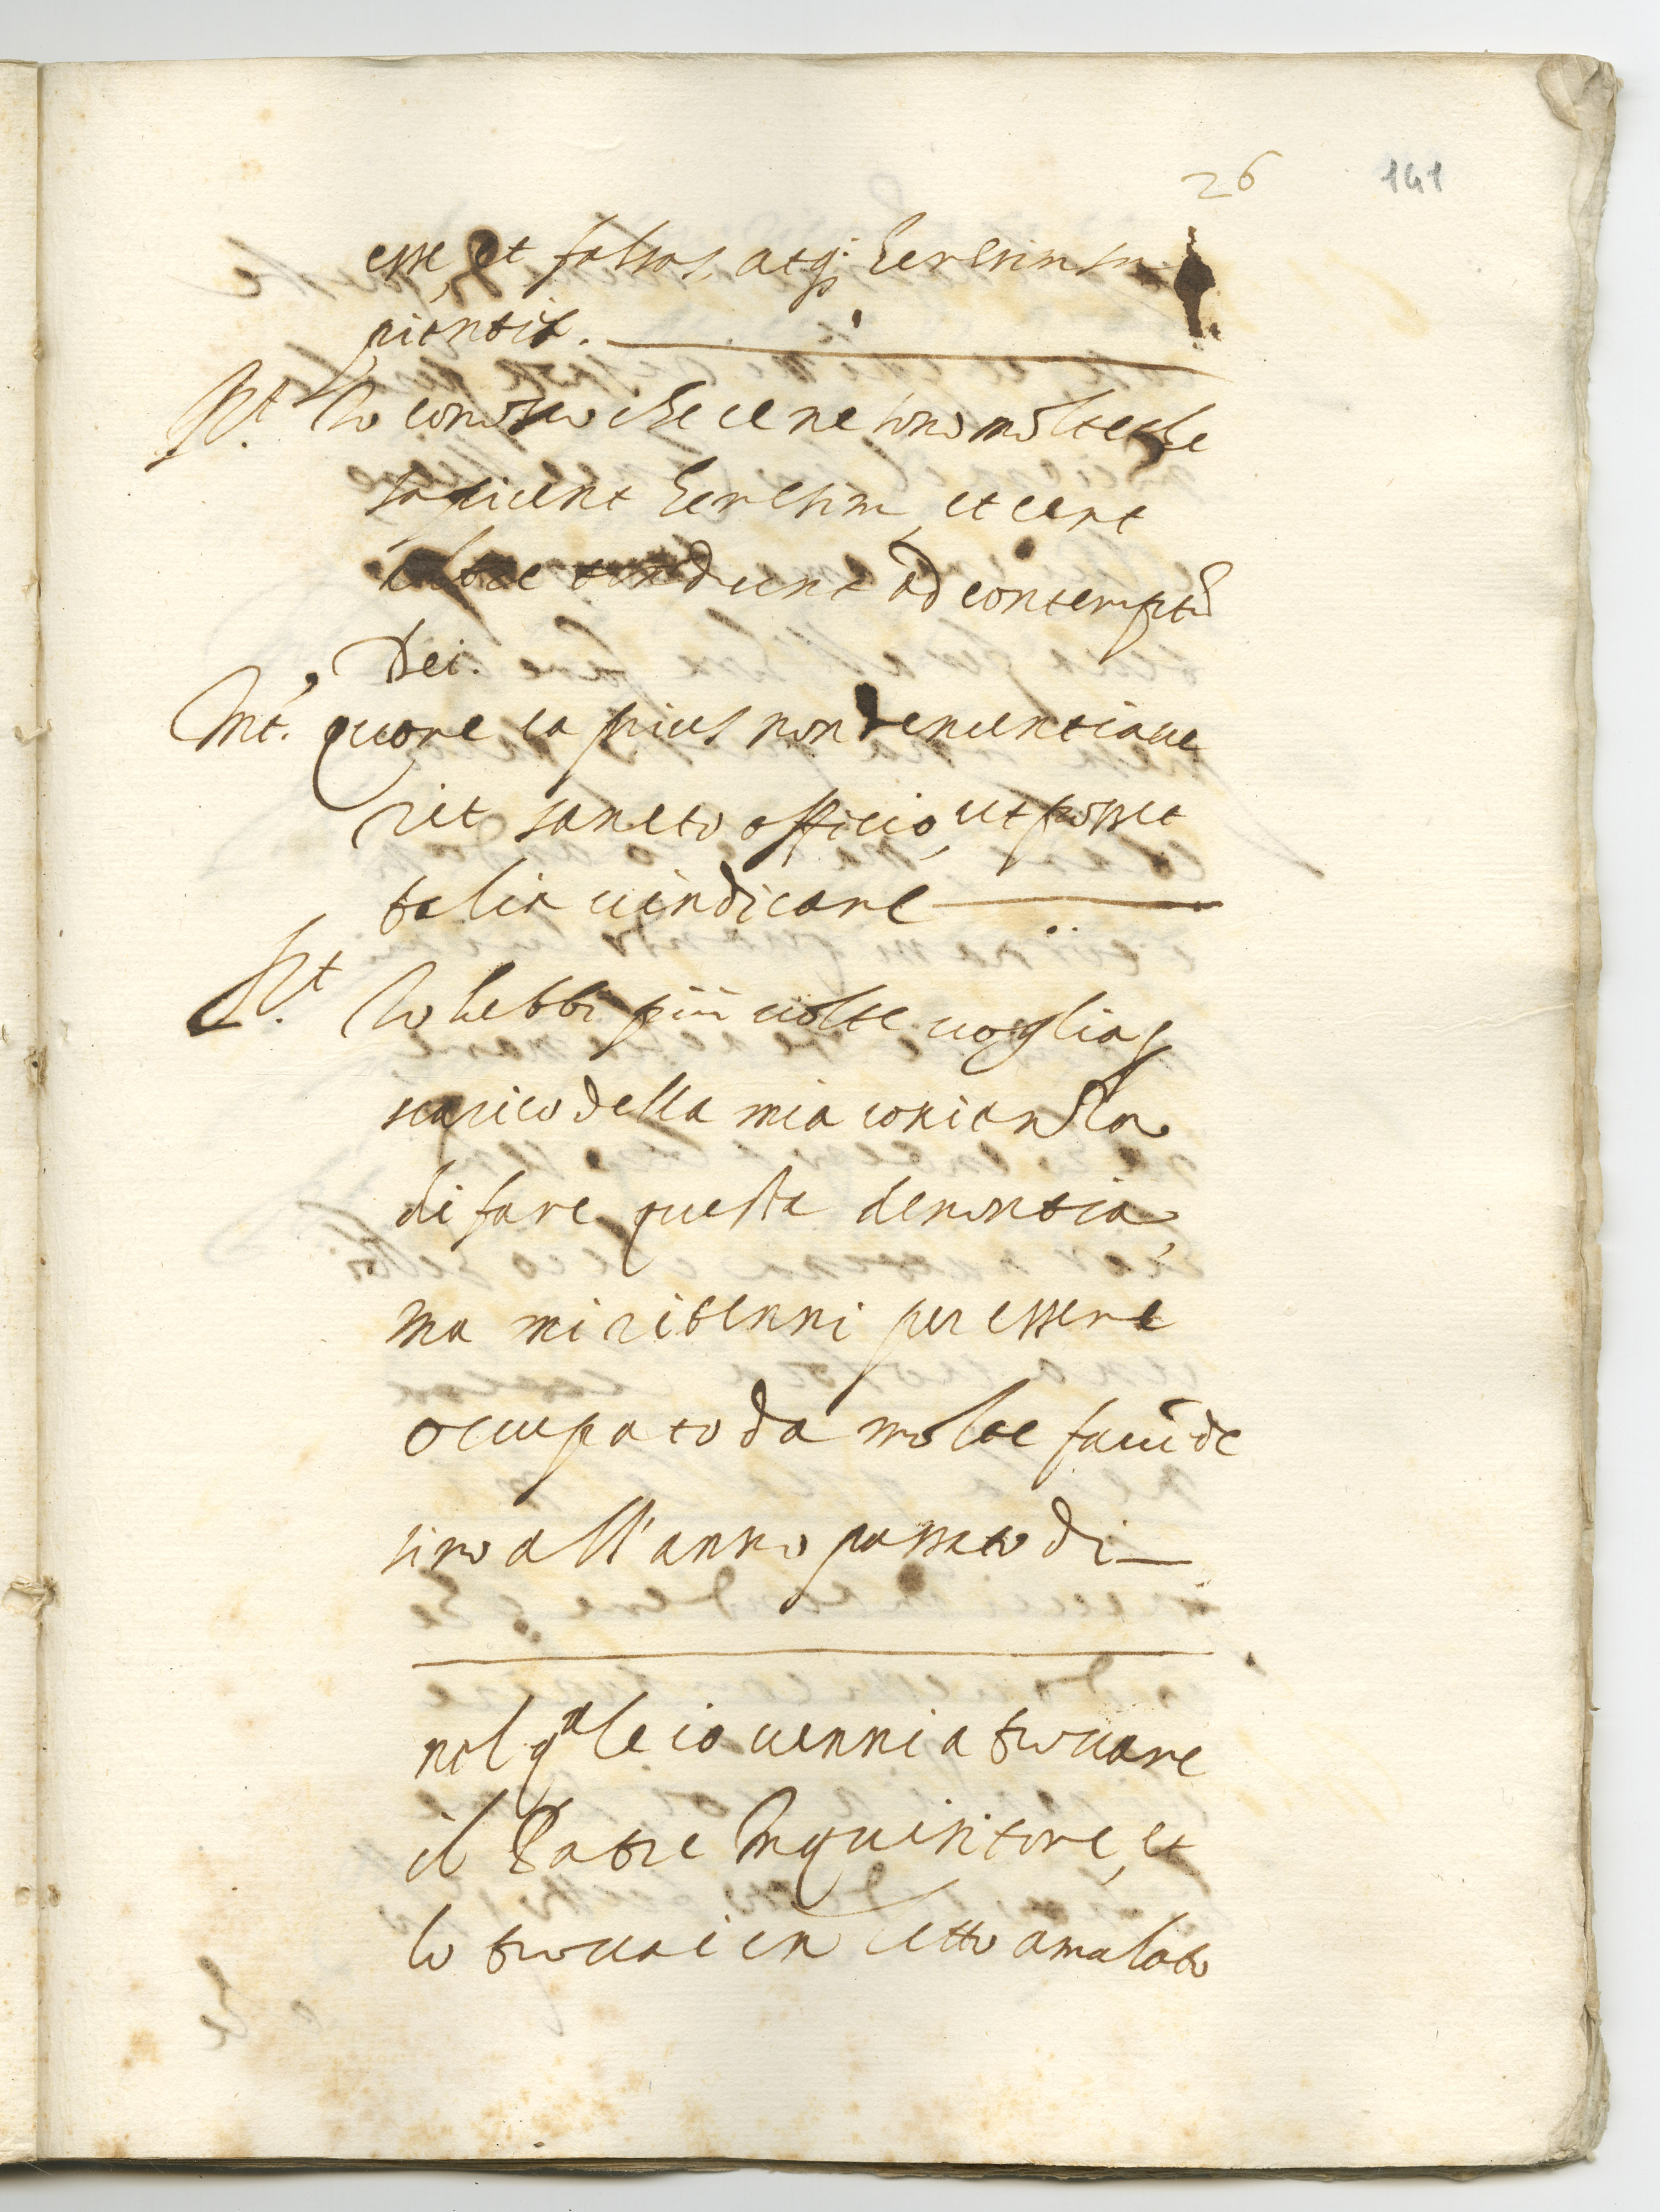 26 141
esse, et falsas, atq; heresim sa
pientes.
Rt. Io conosco che ce ne sono molte che
sapiunt heresim, et cert
tendunt ad contemptũ
Dei.
Int. quare ea prius non denuntiaue
rit sancto officio, ut posset
talia uindicare
Rt. Io hebbi più uolte uoglia p
scarico della mia conscienza
di fare questa denontia,
ma mi ritenni per essere
occupato da molte facẽde
sino all'anno passato di
nel qale io uenni a trouare
il Patre Inquisitore, et
lo trouai in letto amalato